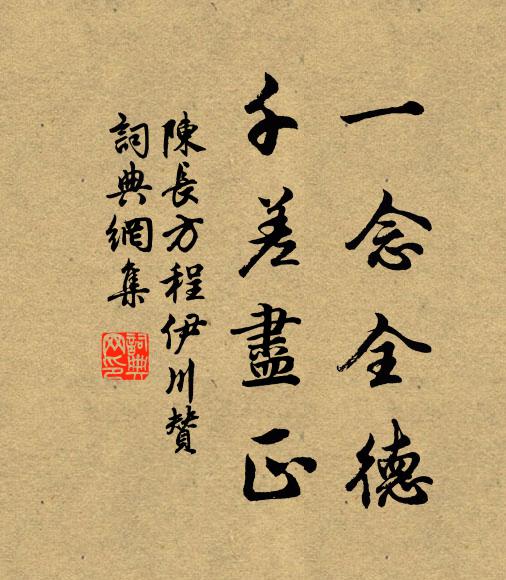 一念全德
千差盡正
陳長方程伊川贊
詞典網集
詞典網印